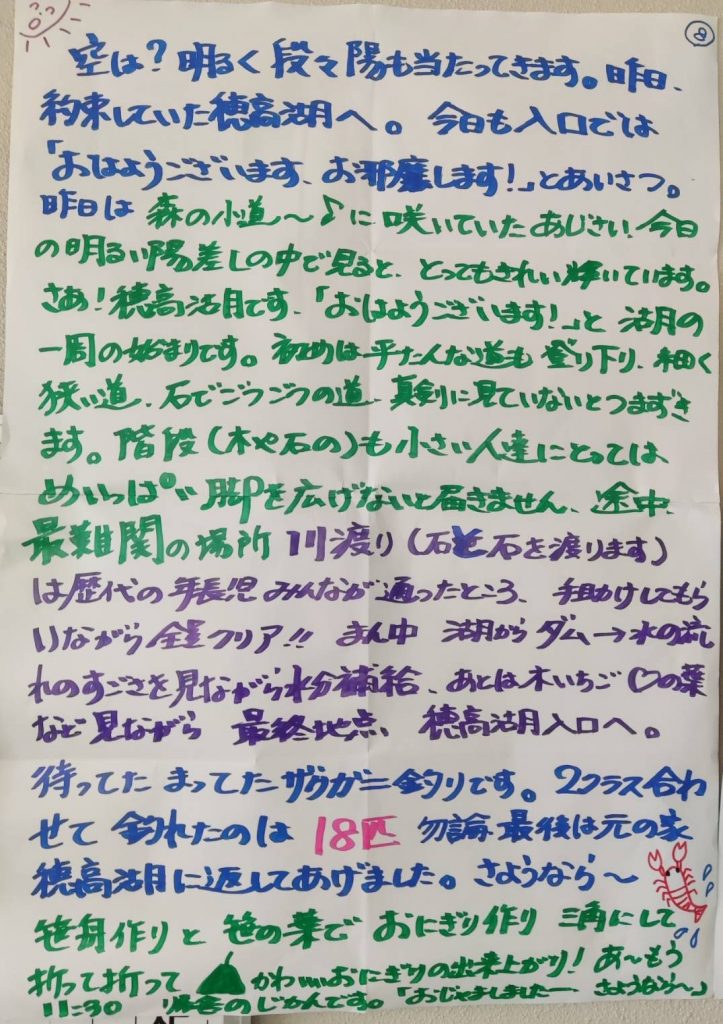 空は?明るく段々陽も当たってきます。昨日、
約束していた穂高湖へ。今日も入口では
「おはようございます、お邪魔します!」とあいさつ。
昨日は森の小道〜♪に咲いていたあじさい、今日
の明るい陽差しの中で見ると、とってもきれい輝いています。
さあ!穂高湖です、「おはようございます!」と湖の
一周の始まりです。初めは平たんな道も登り下り、細く
狭い道、石でごつごつの道、真剣に見ていないとつまずき
ます。階段(木や石の)も小さい人達にとっては
めいっぱい脚を広げないと届きません、途中、
最難関の場所 川渡り(石と石を渡ります)
は歴代の年長児みんなが通ったところ、手助けしてもら
いながら全員クリア!! まん中 湖からダム→水の流
れのすごさを見ながら水分補給、あとは木いちご♡の葉
など見ながら 最終地点、穂高湖入口へ。
待ってた まってたザリガニ釣りです。2クラス合わ
せて 釣れたのは 18匹 勿論 最後は元の家
穂高湖に返してあげました。さようなら〜
笹舟作りと 笹の葉で おにぎり作り 三角にして
折って折って かわいいおにぎりの出来上がり! あ〜もう
11:30 帰舎のじかんです。「おじゃましましたー さようなら〜」